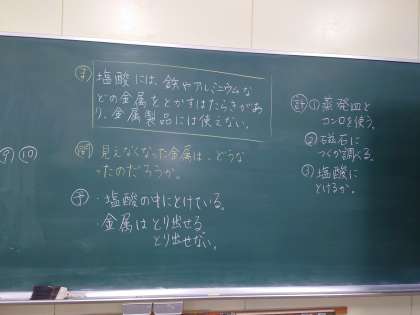 ま 塩酸には、鉄やアルミニウムな
どの金属をとかすはたらきがあ
り、金属製品には使えない。
⑨ ⑩
問 見えなくなった金属は、どうな
ったのだろうか。
予 ・塩酸の中にとけている。
・金属はとり出せる。
とり出せない。
計 ① 蒸発皿と
コンロを使う。
② 磁石に
つくか調べる。
③ 塩酸に
とけるか。